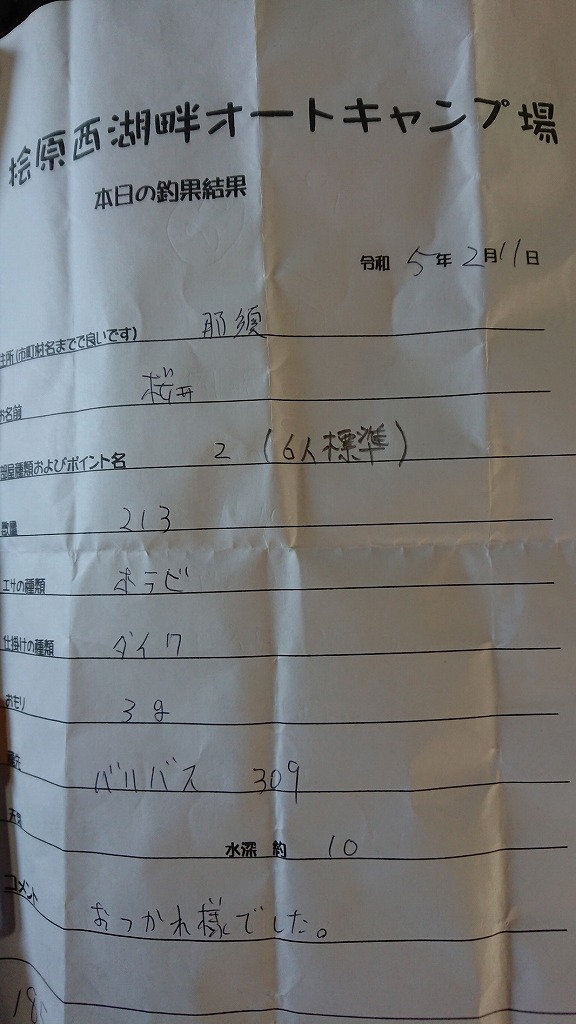 桧原西湖畔オートキャンプ場
本日の釣果結果
令和 5年 2月 11日
住所(市町村名までで良いです) 那須
お名前 桜井
部屋種類およびポイント名 2 (6人標準)
数量 213
エサの種類 ホラビ
仕掛けの種類 ダイワ
おもり 3g
穂先 バリバス 309
天気 水深 約 10
コメント おつかれ様でした。